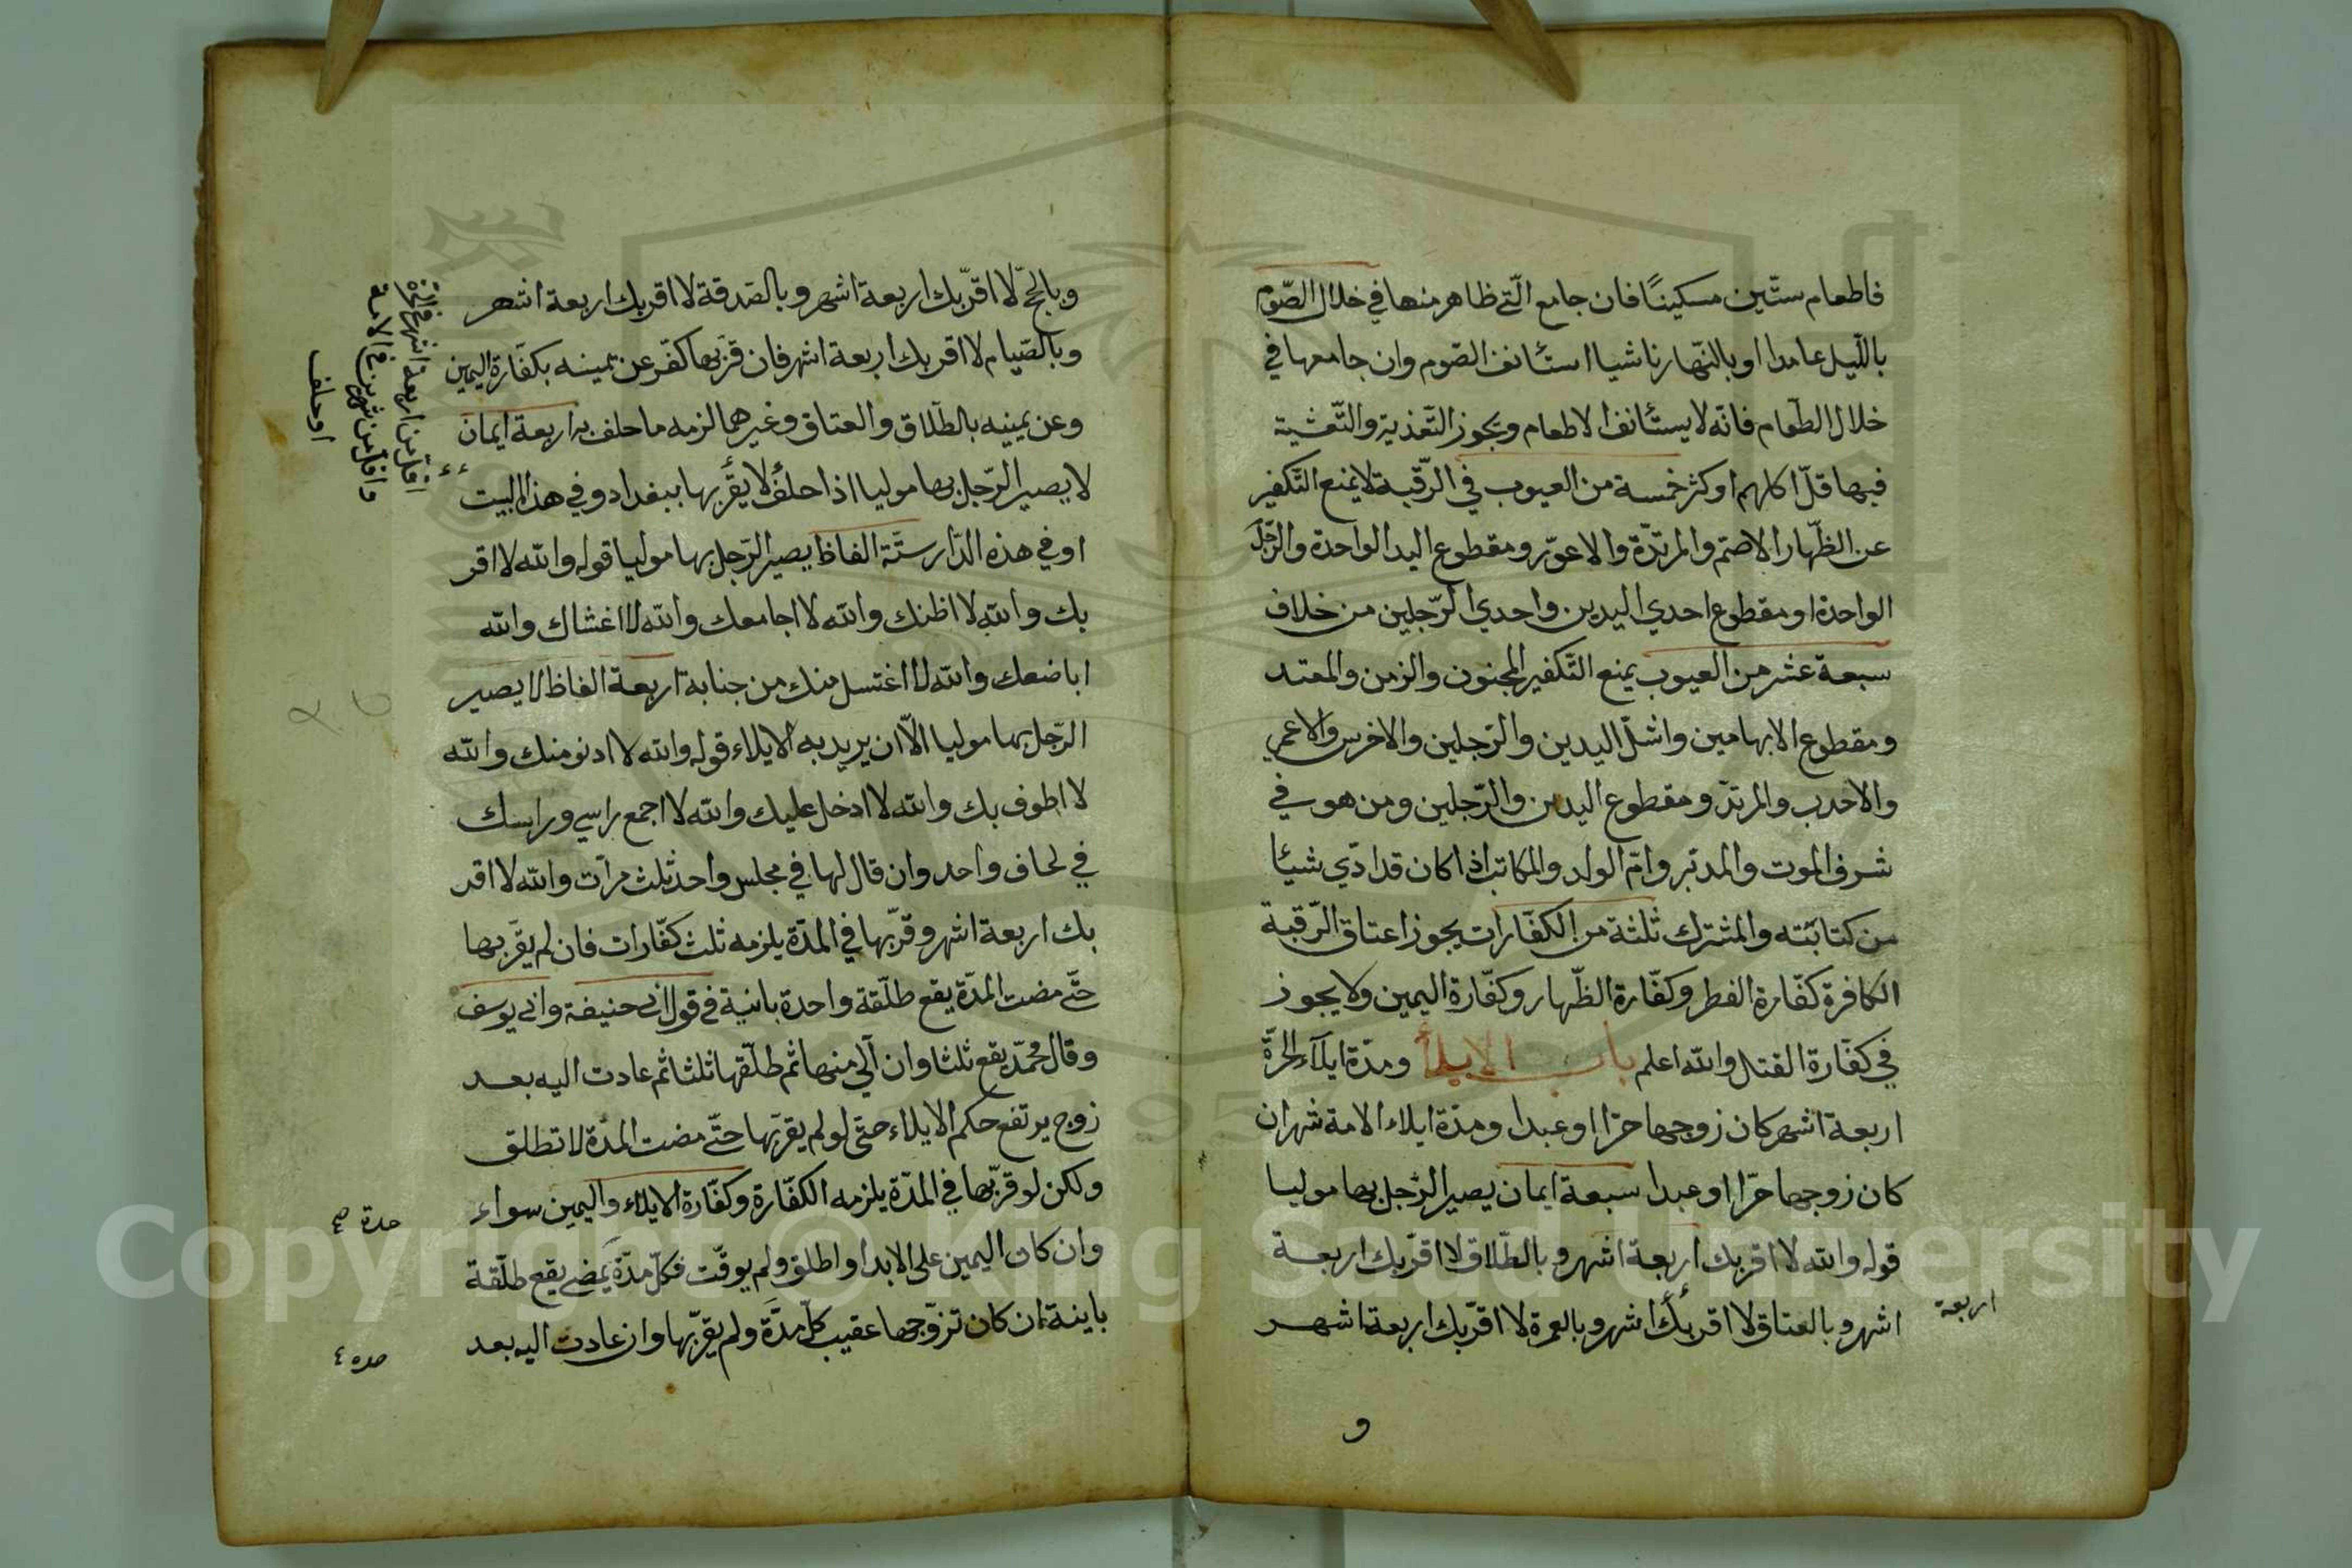 فاطعام ستّين مسكينًا فان جامع الّتي ظاهر منها في خلال الصّوم
باللّيل عامدا او بالنّهار ناشيا استئانف الصّوم وان جامعها في
خلال الطّعام فانّه لا يستئانف الاطعام ويجوز التّغذية والتّعشية
فيها قلّ اكلهم او كثر خمسة من العيوب في الرّقبة لا يمنع التّكفير
عن الظّهار الاصمّ والمرتدّة والاعوّر ومقطوع اليد الواحدة والرّجل
الواحدة او مقطوع احدي اليدين واحدي الرّجلين من خلاف
سبعة عشر من العيوب يمنع التّكفير المجنون والزمن والمقعد
ومقطوع الابهامين واشلّ اليدين والرّجلين والاخرس والاعمي
والاحدب والمرتدّ ومقطوع اليدين والرّجلين ومن هو في
شرف الموت والمدبّر وامّ الولد والمكاتب اذا كان قد ادّي شيئا
من كتابته والمشترك ثلثة من الكفّارات يجوز اعتاق الرّقبة
الكافرة كفّارة الفطر وكفّارة الظّهار وكفّارة اليمين ولا يجوز
في كفّارة القتل والله اعلم باب الايلاء ومدّة ايلاء الحرّة
اربعة اشهر كان زوجها حرّا او عبدا ومدّة ايلاء الامة شهران
كان زوجها حرّا او عبدا سبعة ايمان يصير الرّجل بها موليا
قوله والله لا اقربك اربعة اشهر وبالطّلاق لا اقرّبك اربعة
اشهر وبالعتاق لا اقربك اشهر وبالعمرة لا اقرّبك اربعة اشهر
اربعة
و
وبالحجّ لا اقرّبك اربعة اشهر وبالصّدقة لا اقربك اربعة اشهر
وبالصّيام لا اقربك اربعة اشهر فان قرّبها كفّر عن يمينه بكفّارة اليمين
وعن يمينه بالطّلاق والعتاق وغيرهما لزمه ما حلف به اربعة ايمان
لا يصير الرّجل بها موليا اذا حلف لا يقربها ببغداد وفي هذا البيت
او في هذه الدّار ستّة الفاظ يصير الرّجل بها موليا قوله والله لا اقر
بك والله لا اظنك والله لا اجامعك والله لا اغشاك والله
اباضعك والله لا اغتسل منك من جنابة اربعة الفاظ لا يصير
الرّجل بها موليا الّا ان يريد به الايلاء قوله والله لا ادنو منك والله
لا اطوف بك والله لا ادخل عليك والله لا اجمع راسي وراسك
في لحاف واحد وان قال لها في مجلس واحد ثلث مرّات والله لا اقر
بك اربعة اشهر وقرّبها في المدّة يلزمه ثلث كفّارات فان لم يقرّبها
حتّي مضت المدّة يقع طلّقة واحدة باينة في قول ابي حنيفة وابي يوسف
وقال محمّد يقع ثلثا وان آلي منها ثم طلّقها ثلثا ثم عادت اليه بعد
زوج يرتفع حكم الايلاء حتّي لو لم يقربها حتّي مضت المدّة لا تطلق
ولكن لو قرّبها في المدّة يلزمه الكفّارة وكفّارة الايلاء واليمين سواء
وان كان اليمين علي الابد او اطلق ولم يوقّت فكلّ مدّة يمضي يقع طلّقة
باينة ان كان تزوّجها عقيب كلّ مدّة ولم يقرّبها وان عادت اليه بعد
اقلّ من اربعة اشهر في الحرّة
واقلّ من شهرين في الامة
او حلف
Copyright © King Saud University